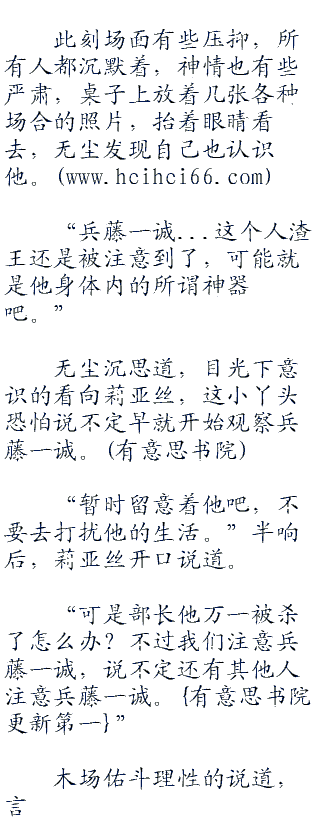 此刻场面有些压抑，所
有人都沉默着，神情也有些
严肃，桌子上放着几张各种
场合的照片，抬着眼睛看
去，无尘发现自己也认识
他。(www.hcihci66.com)
“兵藤一诚...这个人渣
王还是被注意到了，可能就
是他身体内的所谓神器
吧。”
无尘沉思道，目光下意
识的看向莉亚丝，这小丫头
恐怕说不定早就开始观察兵
藤一诚。(有意思书院)
“暂时留意着他吧，不
要去打扰他的生活。”半响
后，莉亚丝开口说道。
“可是部长他万一被杀
了怎么办？不过我们注意兵
藤一诚，说不定还有其他人
注意兵藤一诚。{有意思书院
更新第一}”
木场佑斗理性的说道，
言